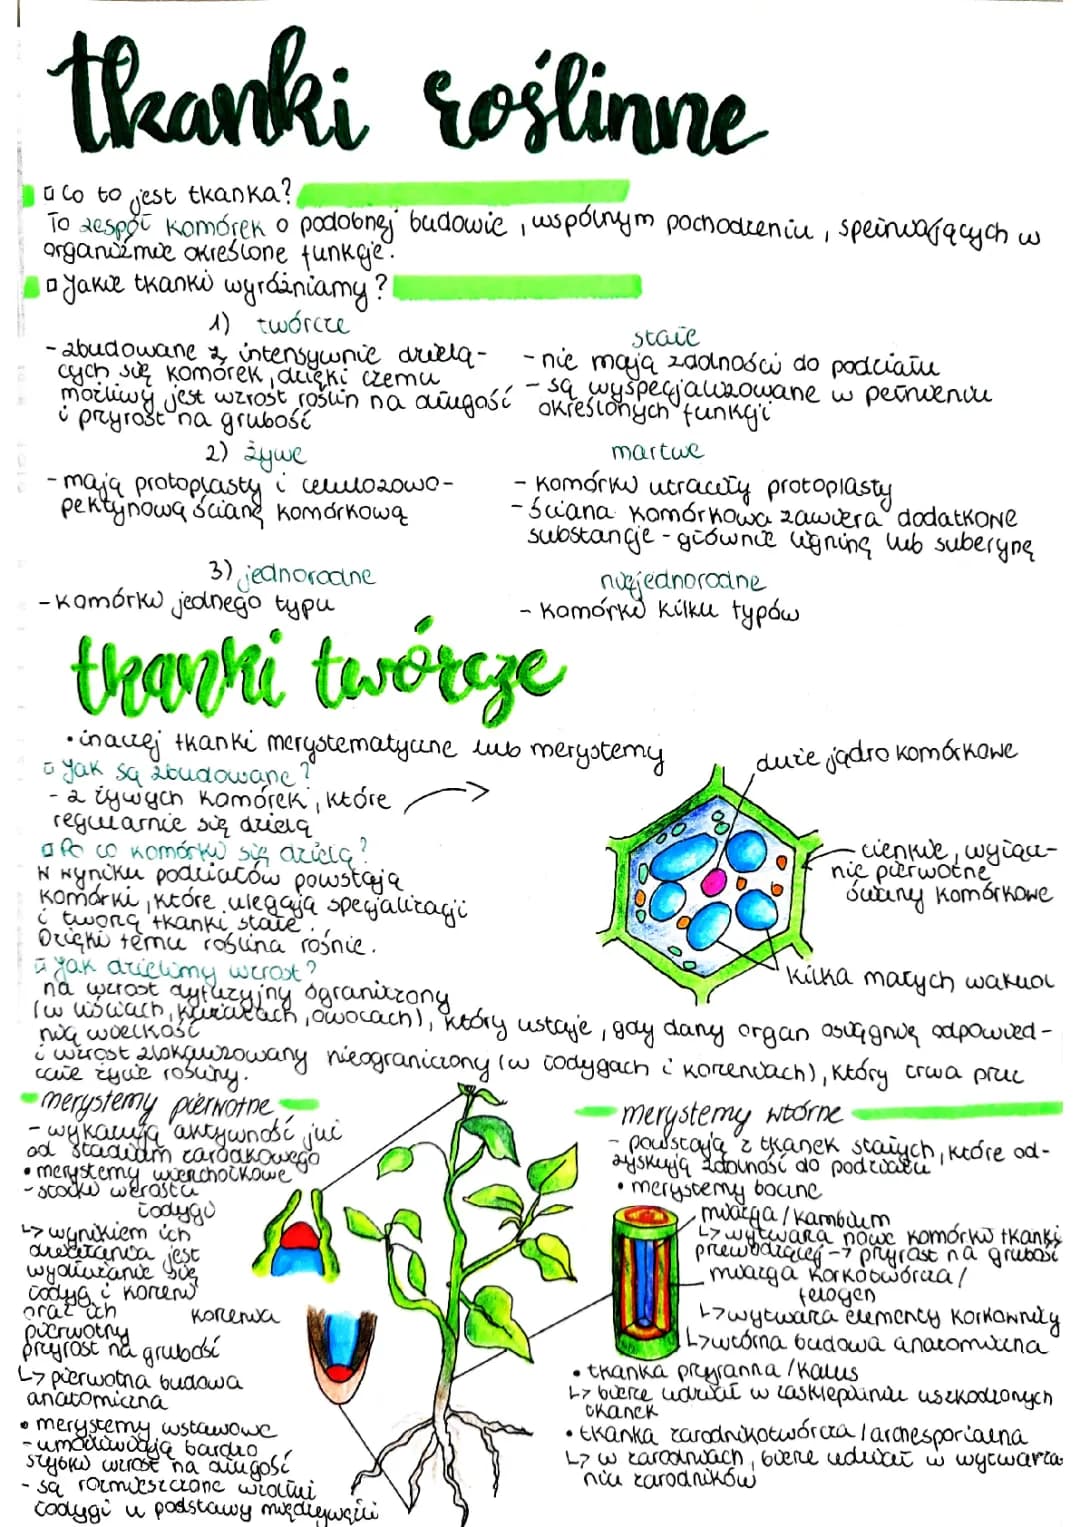 tkanki roślinne
co to jest tkanka?
To zespół komórek o podobnej budowie, wspólnym pochodzeniu, spełniających w
organizmie określone funkcje.
Jakie tkanki wyróżniamy?
1) twórcze
- zbudowane z intensywnie dzielą-
cych się komórek, dzięki czemu
możliwy jest wzrost roślin na długość
i przyrost na grubość
stałe
- nie mają zdolności do podziału
- są wyspecjalizowane w pełnieniu
określonych funkcji
2) żywe
- mają protoplasty i celulozowo-
pektynową ścianę komórkową
martwe
- komórki utraciły protoplasty
- ściana komórkowa zawiera dodatkowe
substancje - głównie ligninę lub suberynę
3) jednorodne
- komórki jednego typu
niejednorodne
- komórki kilku typów
tkanki twórcze
• inaczej tkanki merystematyczne lub merystemy
Jak są zbudowane?
- z żywych komórek, które
regularnie się dzielą
Po co komórki się dzielą?
W wyniku podziałów powstają
komórki, które ulegają specjalizacji
i tworzą tkanki stałe.
Dzięki temu roślina rośnie.
duże jądro komórkowe
cienkie, wyłącz-
nie pierwotne
ściany komórkowe
kilka małych wakuol
Jak dzielimy wzrost?
na wzrost dyfuzyjny ograniczony
(w liściach, kwiatach, owocach), który ustaje, gdy dany organ osiągnie odpowied-
nią wielkość
i wzrost zlokalizowany nieograniczony (w łodygach i korzeniach), który trwa przez
całe życie rośliny.
merystemy pierwotne
- wykazują aktywność już
od stadium zarodkowego
• merystemy wierzchołkowe
- stożki wzrostu
łodygi
↳ wynikiem ich
działania jest
wydłużanie się
łodyg i korzeni
oraz ich
pierwotny
przyrost na grubość
korzenia
↳ pierwotna budowa
anatomiczna
• merystemy wstawowe
- umożliwiają bardzo
szybki wzrost na długość
- są rozmieszczone wzdłuż
łodygi u podstawy międzywęźli
merystemy wtórne
- powstają z tkanek stałych, które od-
zyskują zdolność do podziału
• merystemy boczne
miazga/kambium
↳ wytwarza nowe komórki tkanki
przewodzącej → przyrost na grubość
miazga korkotwórcza/
felogen
↳ wytwarza elementy korkowicy
↳ wtórna budowa anatomiczna
• tkanka przyranna/kalus
↳ bierze udział w zasklepianiu uszkodzonych
tkanek
• tkanka zarodnikotwórcza/archesporialna
↳ w zarodniach, bierze udział w wytwarza-
niu zarodników